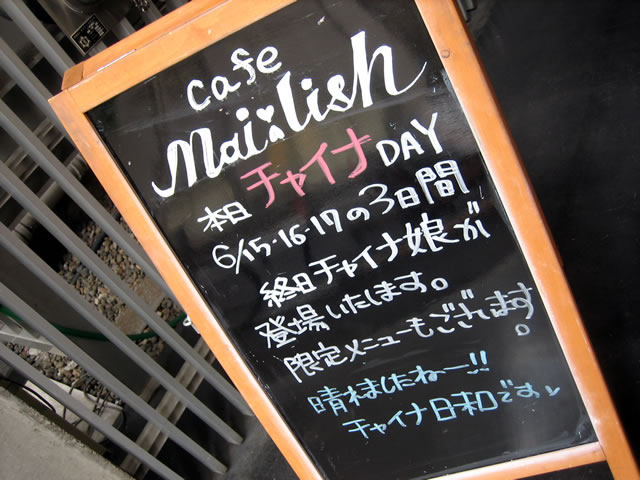 cafe
Mai:lish
本日 チャイナDAY
6/15・16・17の3日間
終日チャイナ娘が
登場いたします。
限定メニューもございます。
晴れましたねー!!
チャイナ日和です